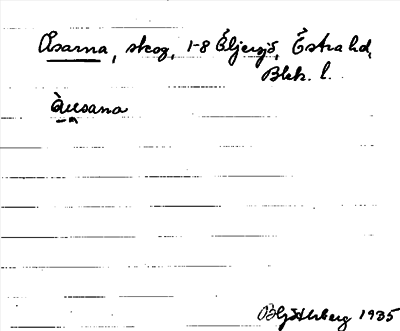 Åsarna, skog, 1-8 Eljersjö, Östra hd,
Blek. l.
Åusana
1935